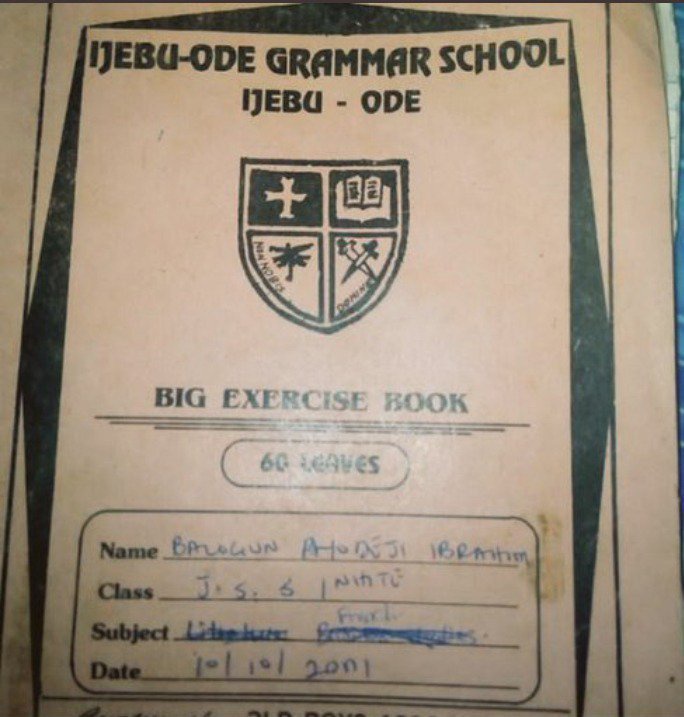 IJEBU-ODE GRAMMAR SCHOOL
IJEBU - ODE
NON NOBIS
DOMINE
BIG EXERCISE BOOK
60 LEAVES
Name BALOGUN AYODEJI IBRAHIM
Class J. S. S 1 WHITE
Subject Literature
Date 10/10/2001
OLD BOYS